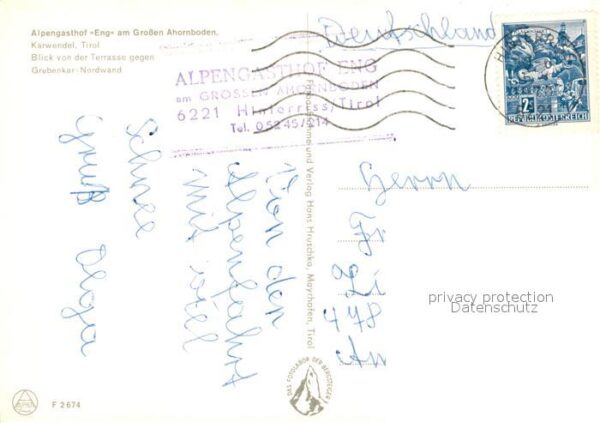 Alpengasthof »Eng« am Großen Ahornboden,
Karwendel, Tirol
Blick von der Terrasse gegen
Grubenkar-Nordwand
Deutschland
ALPENGASTHOF ENG
am GROSSEN AHORNBODEN
6221 Hinterriss/Tirol
Tel. 05245/214
2
REPUBLIK ÖSTERREICH
Von der
Alpenfahrt
mit viel
Schnee
Gruß Olga
Verlag Hans Hruschka, Mayrhofen, Tirol
Herrn
Fr
478
privacy protection
Datenschutz
DAS FOTOLABOR DER BERGSTEIGER
F 2674